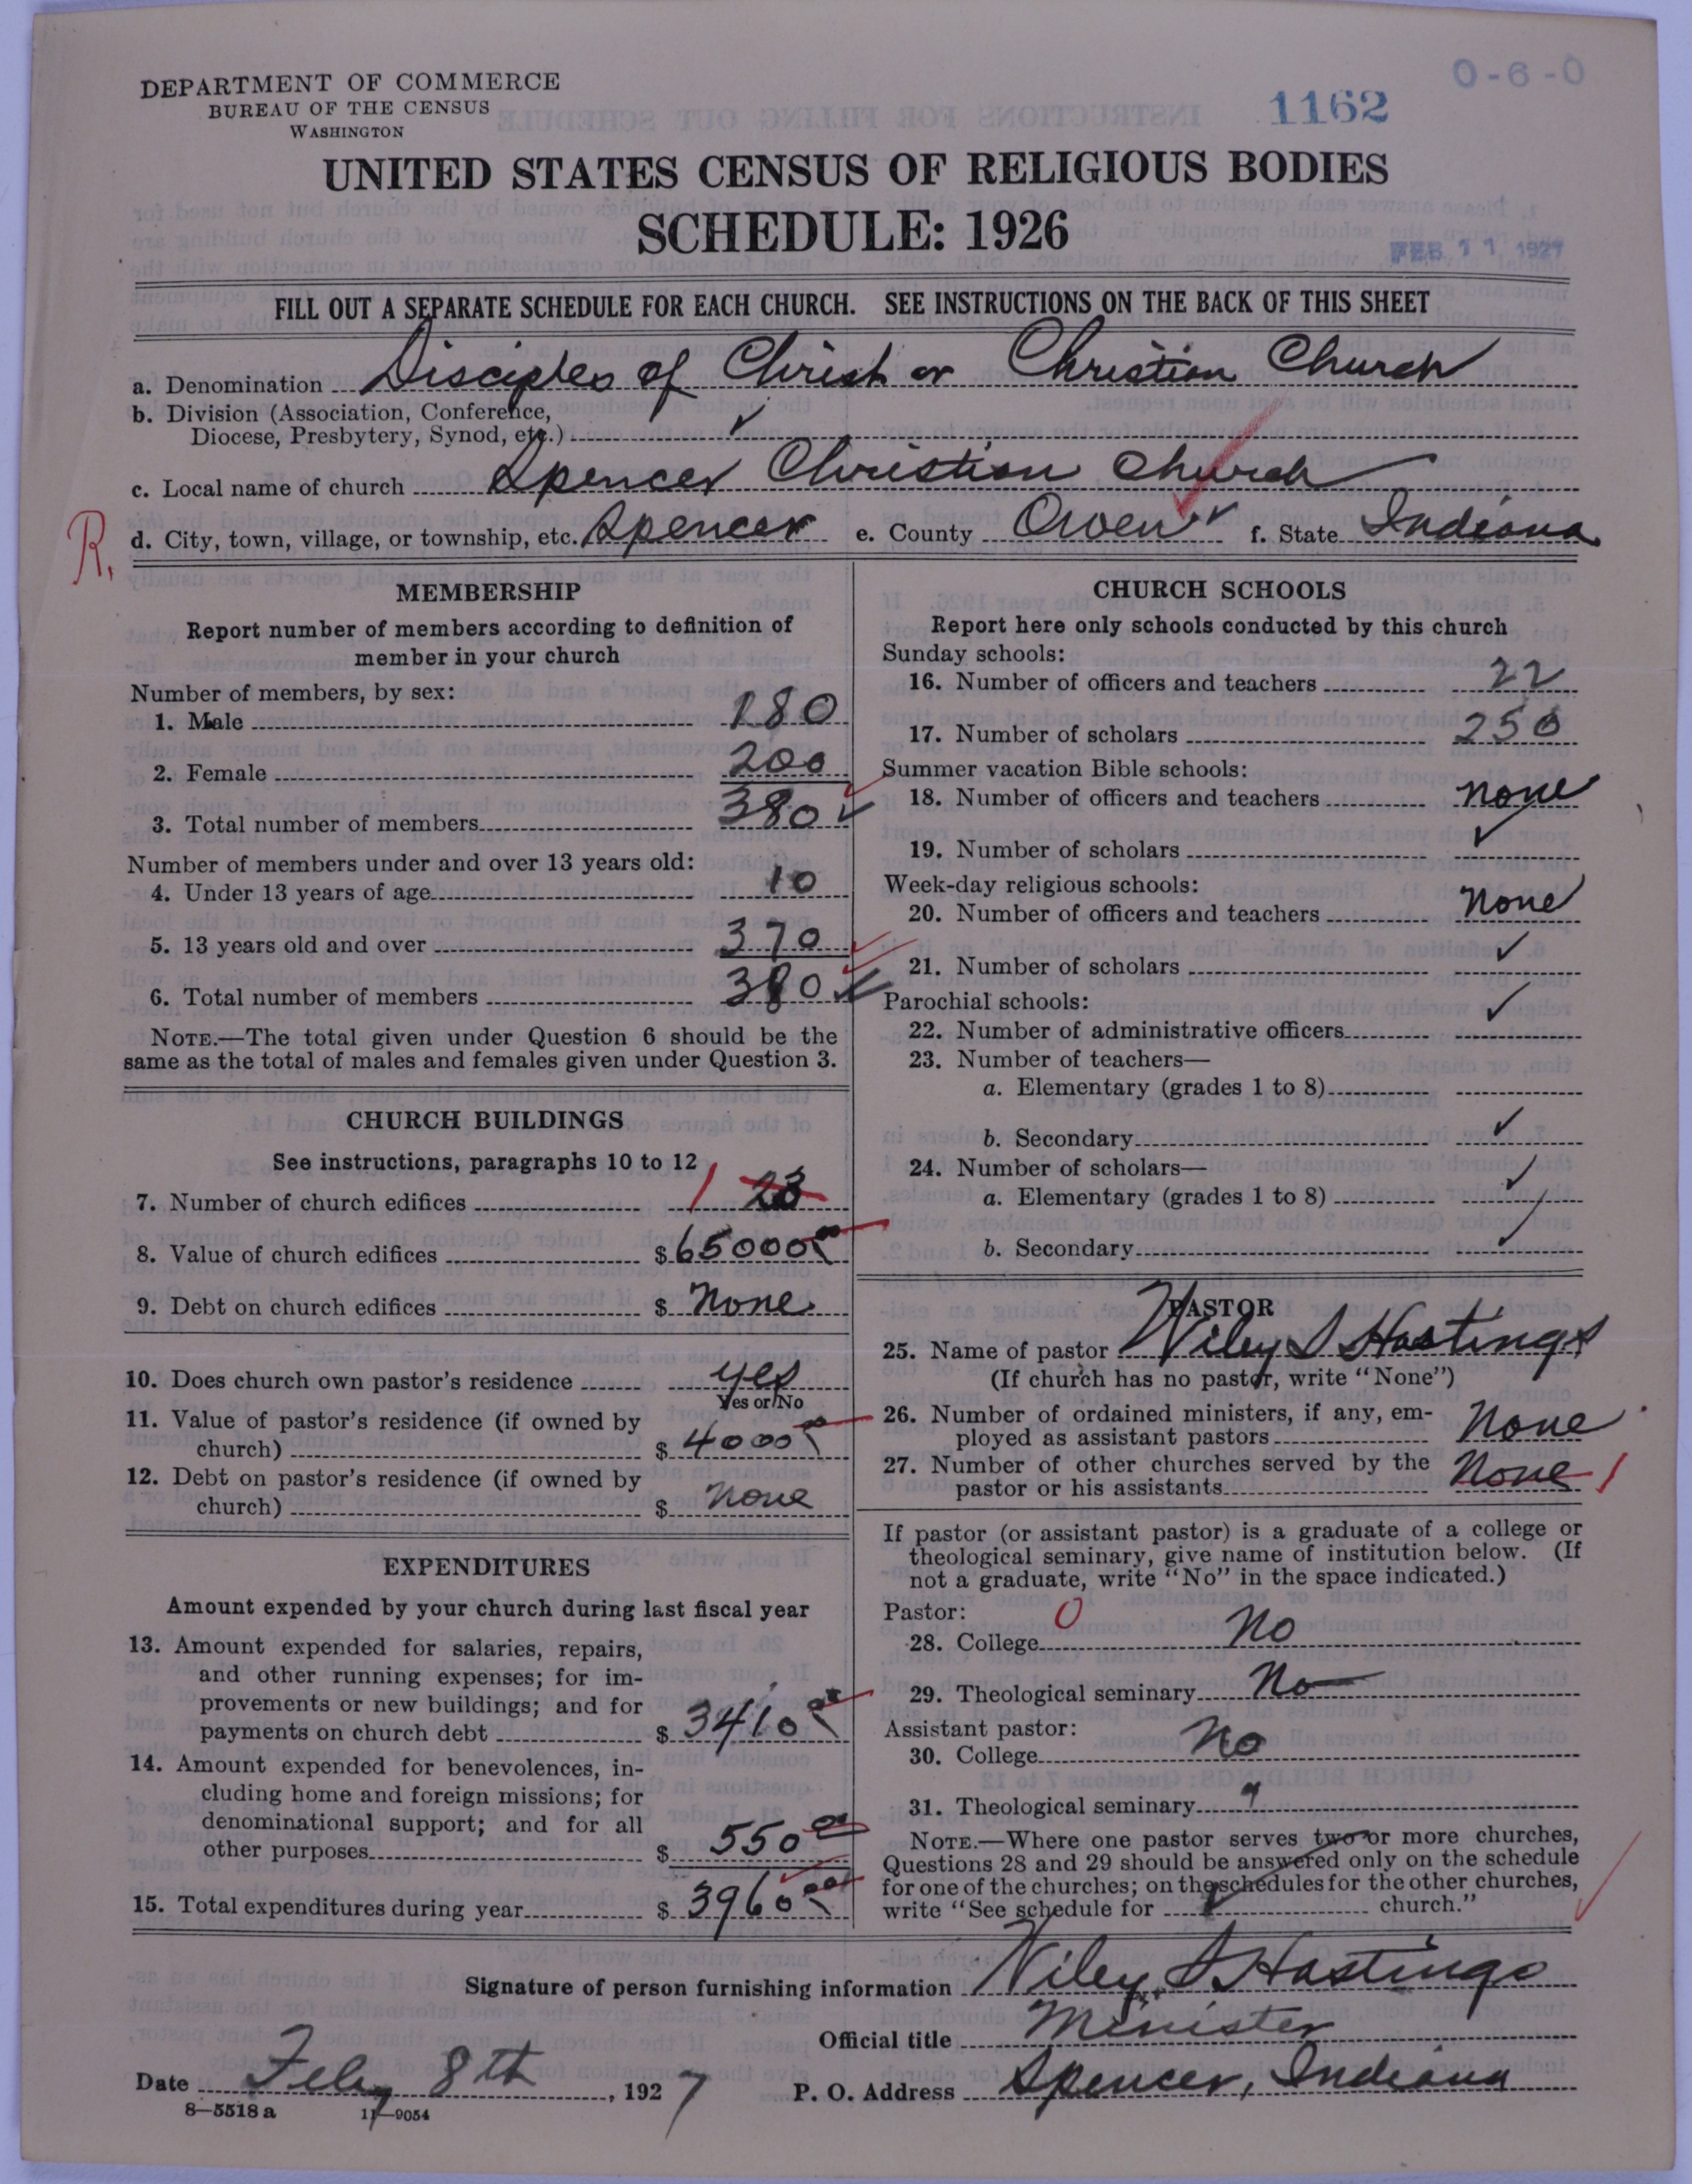 DEPARTMENT OF COMMERCE
BUREAU OF THE CENSUS
WASHINGTON
0-6-0
1162
UNITED STATES CENSUS OF RELIGIOUS BODIES
SCHEDULE: 1926
FEB 11 1927
FILL OUT A SEPARATE SCHEDULE FOR EACH CHURCH. SEE INSTRUCTIONS ON THE BACK OF THIS SHEET
a. Denomination Disciples of Christ or Christian Church
b. Division (Association, Conference,
Diocese, Presbytery, Synod, etc.) ✓
c. Local name of church Spencer Christian Church
R. d. City, town, village, or township, etc. Spencer e. County Owen ✓ f. State Indiana
MEMBERSHIP
Report number of members according to definition of
member in your church
Number of members, by sex:
1. Male 180
2. Female 200
3. Total number of members 380 ✓
Number of members under and over 13 years old:
4. Under 13 years of age 10
5. 13 years old and over 370
6. Total number of members 380 ✓
NOTE.—The total given under Question 6 should be the
same as the total of males and females given under Question 3.
CHURCH BUILDINGS
See instructions, paragraphs 10 to 12
7. Number of church edifices 1 23
8. Value of church edifices $ 65000 00
9. Debt on church edifices $ None
10. Does church own pastor's residence yes
Yes or No
11. Value of pastor's residence (if owned by
church) $ 4000 00
12. Debt on pastor's residence (if owned by
church) $ none
EXPENDITURES
Amount expended by your church during last fiscal year
13. Amount expended for salaries, repairs,
and other running expenses; for im-
provements or new buildings; and for
payments on church debt $ 3410 00
14. Amount expended for benevolences, in-
cluding home and foreign missions; for
denominational support; and for all
other purposes $ 550 00
15. Total expenditures during year $ 3960 00
CHURCH SCHOOLS
Report here only schools conducted by this church
Sunday schools:
16. Number of officers and teachers 22
17. Number of scholars 250
Summer vacation Bible schools:
18. Number of officers and teachers none
19. Number of scholars ✓
Week-day religious schools:
20. Number of officers and teachers none
21. Number of scholars ✓
Parochial schools: ✓
22. Number of administrative officers
23. Number of teachers—
a. Elementary (grades 1 to 8)
b. Secondary ✓
24. Number of scholars—
a. Elementary (grades 1 to 8) ✓
b. Secondary ✓
PASTOR
25. Name of pastor Wiley S Hastings
(If church has no pastor, write "None")
26. Number of ordained ministers, if any, em-
ployed as assistant pastors None
27. Number of other churches served by the
pastor or his assistants None 1
If pastor (or assistant pastor) is a graduate of a college or
theological seminary, give name of institution below. (If
not a graduate, write "No" in the space indicated.)
Pastor: 0
28. College No
29. Theological seminary No
Assistant pastor:
30. College No
31. Theological seminary
NOTE.—Where one pastor serves two or more churches,
Questions 28 and 29 should be answered only on the schedule
for one of the churches; on the schedules for the other churches,
write "See schedule for ✓ church."
Signature of person furnishing information Wiley S Hastings
Official title Minister
Date Feby 8th, 1927 P. O. Address Spencer, Indiana
8—5518 a 11—9054